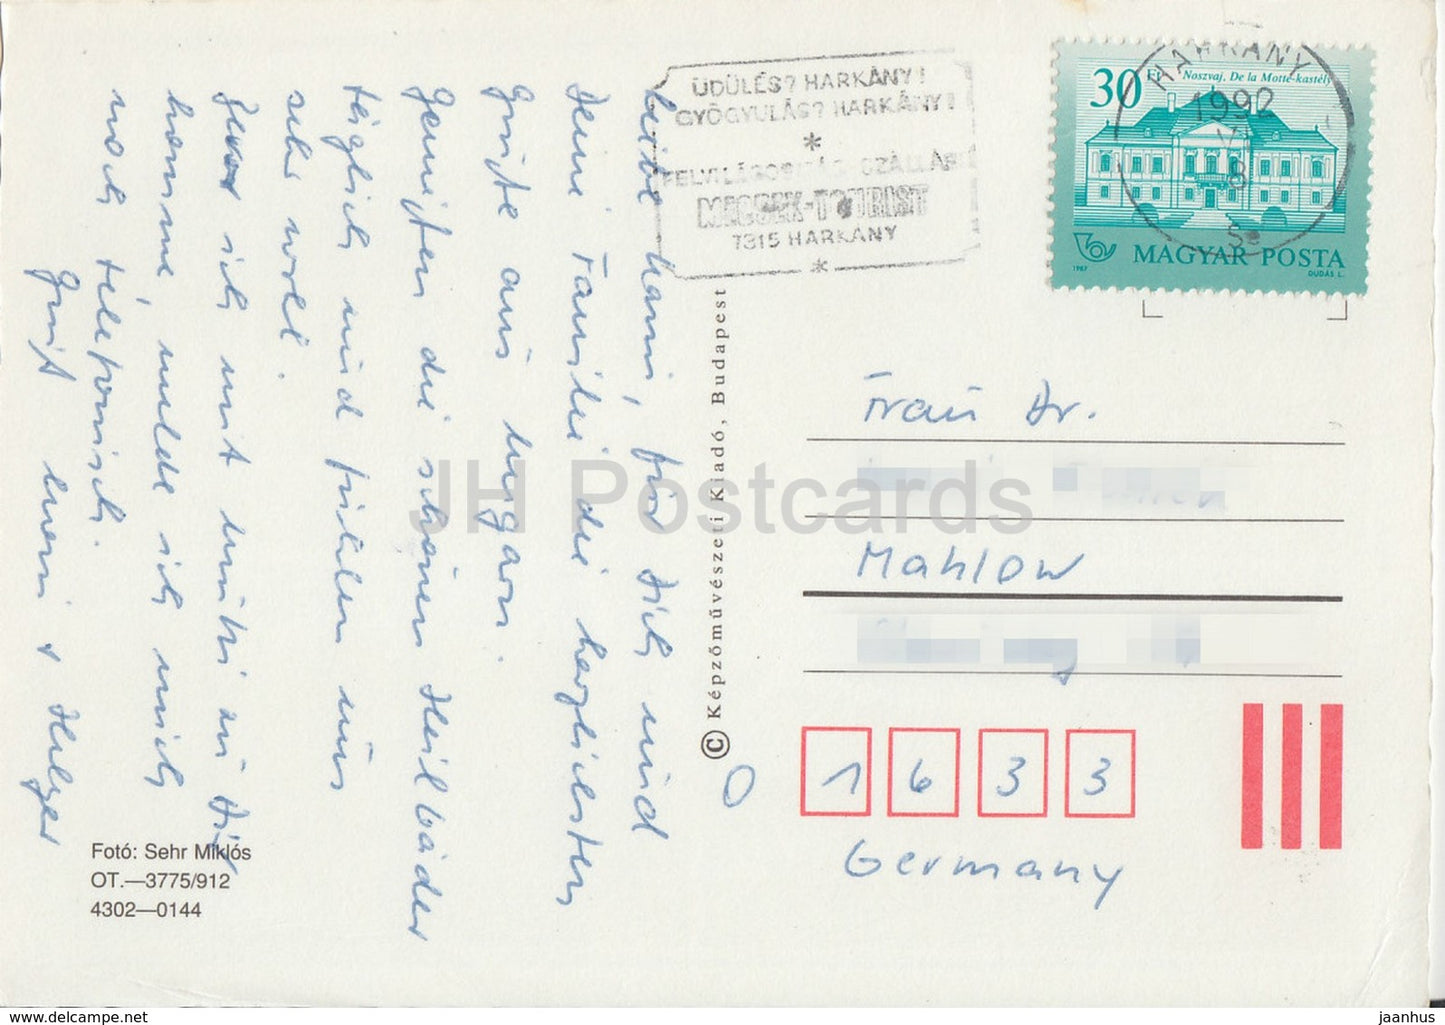 ÜDÜLÉS? HARKÁNY!
GYÓGYULÁS? HARKÁNY!
*
FELVILÁGOSÍTÁS SZÁLLÁS
MECSEK-TOURIST
7315 HARKÁNY
*
30 Ft
Noszvaj, De la Motte-kastély
HARKÁNY
1992
8
MAGYAR POSTA
1987
DUDÁS L.
Liebe Hanni, für Dich und
Deine Familie die herzlichsten
Grüße aus Ungarn.
Genießen die schönen Heilbäder
täglich und fühlen uns
sehr wohl.
sich mit
komme, melde ich mich
noch telefonisch.
Gruß
© Képzőművészeti Kiadó, Budapest
Frau Dr.
Mahlow
0 1633
Germany
Fotó: Sehr Miklós
OT.—3775/912
4302—0144
JH Postcards
https://www.delcampe.net
jaanhus